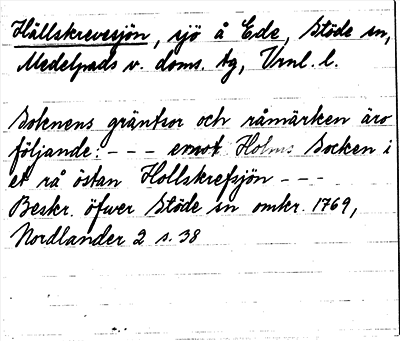 Hällskrevesjön, sjö å Ede, Stöde sn,
Medelpads v. doms. tg, Vrnl. l.
Soknens gräntsor och råmärken äro
följande: - - - emot Holms Socken i
et rå östan Hollskrefsjön - - -
Beskr. öfwer Stöde sn omkr. 1769,
Nordlander 2 s. 38